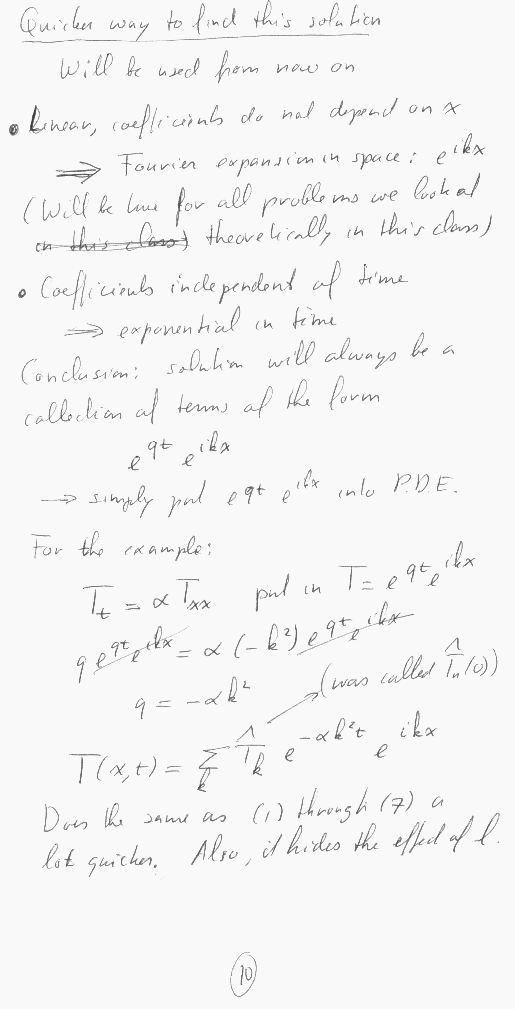 Quicker way to find this solution
Will be used from now on
• Linear, coefficients do not depend on x
⟹ Fourier expansion in space: e^{ikx}
(Will be true for all problems we look at
in this class) theoretically in this class)
• Coefficients independent of time
⟹ exponential in time
Conclusion: solution will always be a
collection of terms of the form
e^{qt} e^{ikx}
→ simply put e^{qt} e^{ikx} into P.D.E.
For the example:
T_t = α T_{xx} put in T = e^{qt} e^{ikx}
q e^{qt} e^{ikx} = α (-k²) e^{qt} e^{ikx}
q = -αk² (was called T̂_n(0))
T(x,t) = Σ_k T̂_k e^{-αk²t} e^{ikx}
Does the same as (1) through (7) a
lot quicker. Also, it hides the effect of l.
10